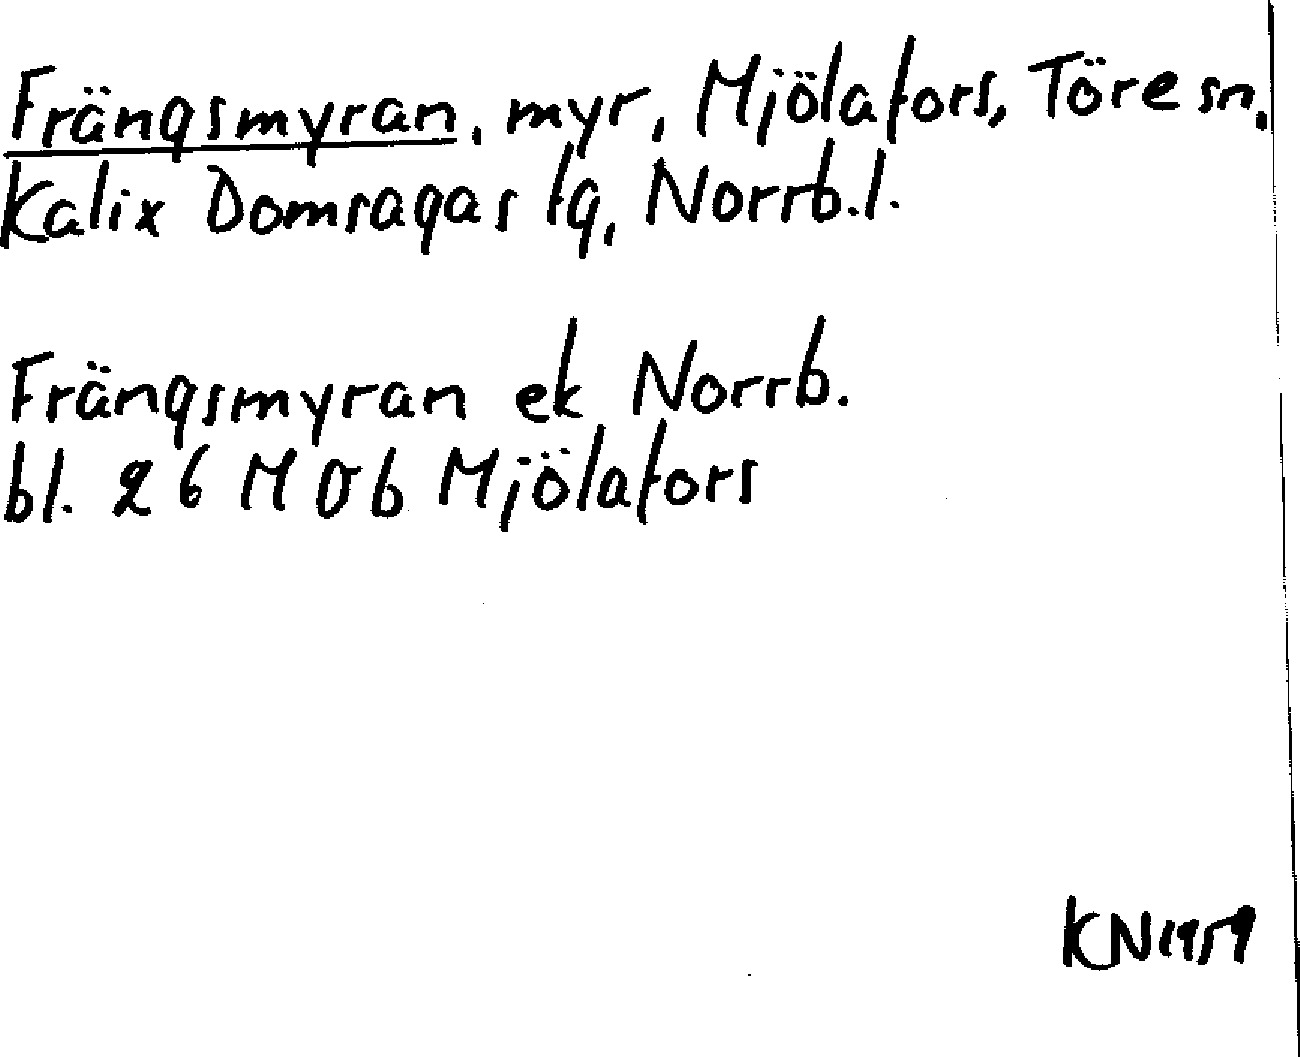 Frängsmyran, myr, Mjölafors, Töre sn,
Kalix Domsagas tg, Norrb.l.
Frängsmyran ek Norrb.
bl. 26 M 0b Mjölafors
KN 1959